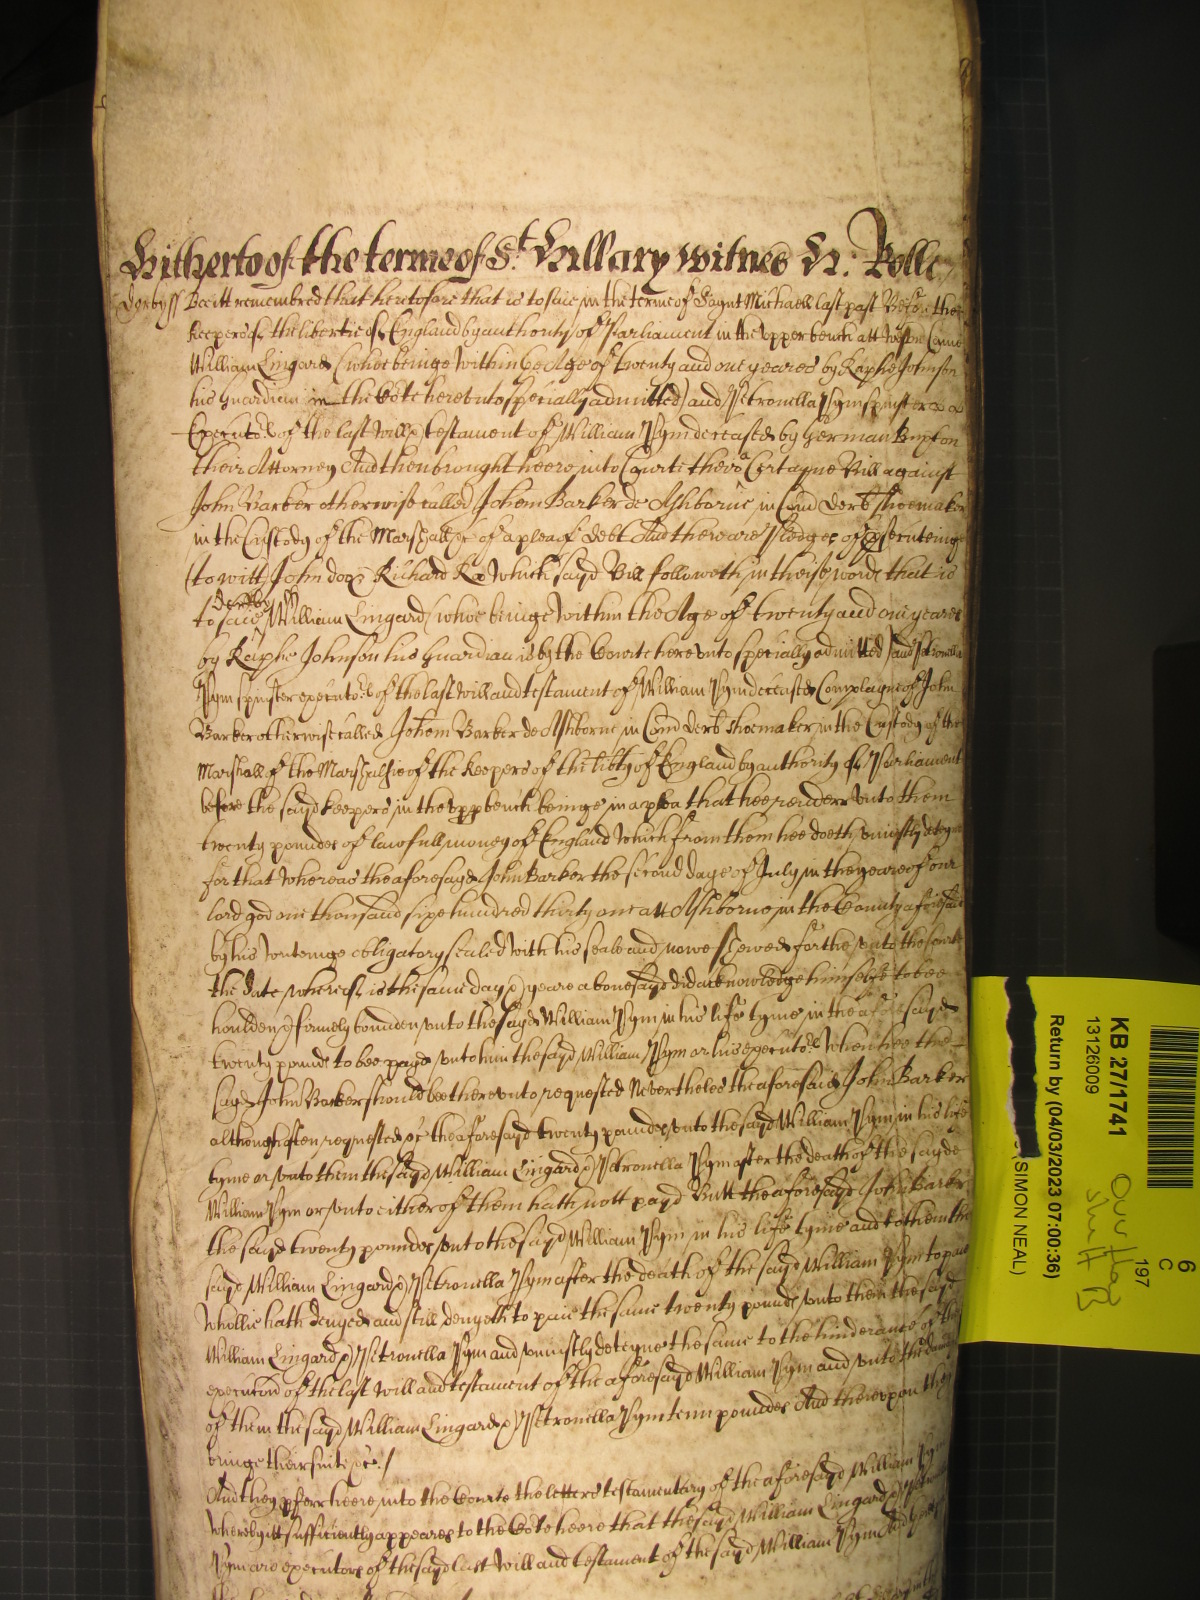 Hitherto of the terme of St. Hillary witnes H: Rolle
Derby ss Bee itt remembred that heretofore that is to saie in the terme of Saynt Michaell last past Before the
Keepers of the libertie of England by authority of Parliament in the upper bench att Westm̃ Came
William Lingard (whoe beinge within the Age of twenty and one yeares by Raphe Johnson
his Guardian in the Cote hereunto specially admitted) and Petronella Pym spinster
Executors of the last will & testament of William Pym deceased by German
their Attorney And then brought heere into Courte there a Certayne Bill against
John Barker otherwise called Johem Barker de Ashborne in Com̃ Derb shoemaker
in the Custody of the Marshall &c of a plea of debt And there are Pledges of prsecuteinge
(to witt) John doo & Richard Roo Which sayd Bill followeth in theise words that is
Derby ss
to saie William Lingard (whoe beinge within the Age of twenty and one yeares
by Raphe Johnson his Guardian is by the Courte hereunto specially admitted) and Petronella
Pym spinster executors of the last will and testament of William Pym deceased Complayne of John
Barker otherwise called Johem Barker de Ashborne in Com̃ Derb shoemaker in the Custody of the
Marshall of the Marshalsie of the Keepers of the libty of England by authority of Parliament
before the sayd keepers in the upp bench beinge in a plea that hee render unto them
twenty poundes of lawfull money of England Which from them hee doeth uniustly deteyne
for that Whereas the aforesayd John Barker the second daye of July in the yeare of our
lord god one thousand sixe hundred thirty one att Ashborne in the County aforesaid
by his writeinge obligatory sealed with his seale and nowe shewed forthe unto the courte
the date whereof is the same day & yeare abovesayd did acknowledge himselfe to bee
houlden & firmely bounden unto the sayd William Pym in his life tyme in the aforesayd
twenty pounds to bee payd unto him the sayd William Pym or his executors When hee the
sayd John Barker should bee thereunto requested Neverthelesse the aforesaid John Barker
although often requested &c the aforesayd twenty poundes unto the sayd William Pym in his life
tyme or unto them the sayd William Lingard & Petronella Pym after the death of the sayde
William Pym or unto either of them hath nott payd Butt the aforesayd John Barker
the sayd twenty poundes unto the sayd William Pym in his life tyme and to them the
sayd William Lingard & Petronella Pym after the death of the sayd William Pym to paie
whollie hath denyed and still denyeth to paie the same twenty pounds unto them the sayd
William Lingard & Petronella Pym and uniustly deteyne the same to the hinderance of the
execution of the last will and testament of the aforesayd William Pym and unto the damage
of them the sayd William Lingard & Petronella Pym tenn poundes And thereupon they
bringe their suite &c. /
And they pferr heere into the Courte the letters testamentary of the aforesayd William Pym
whereby itt sufficiently appeares to the Cote heere that the sayd William Lingard & Petronella
Pym are executors of the sayd last will and testament of the sayd William Pym
KB 27/1741
13126009
Return by (04/03/2023 07:00:36)
(SIMON NEAL)
6
C
197